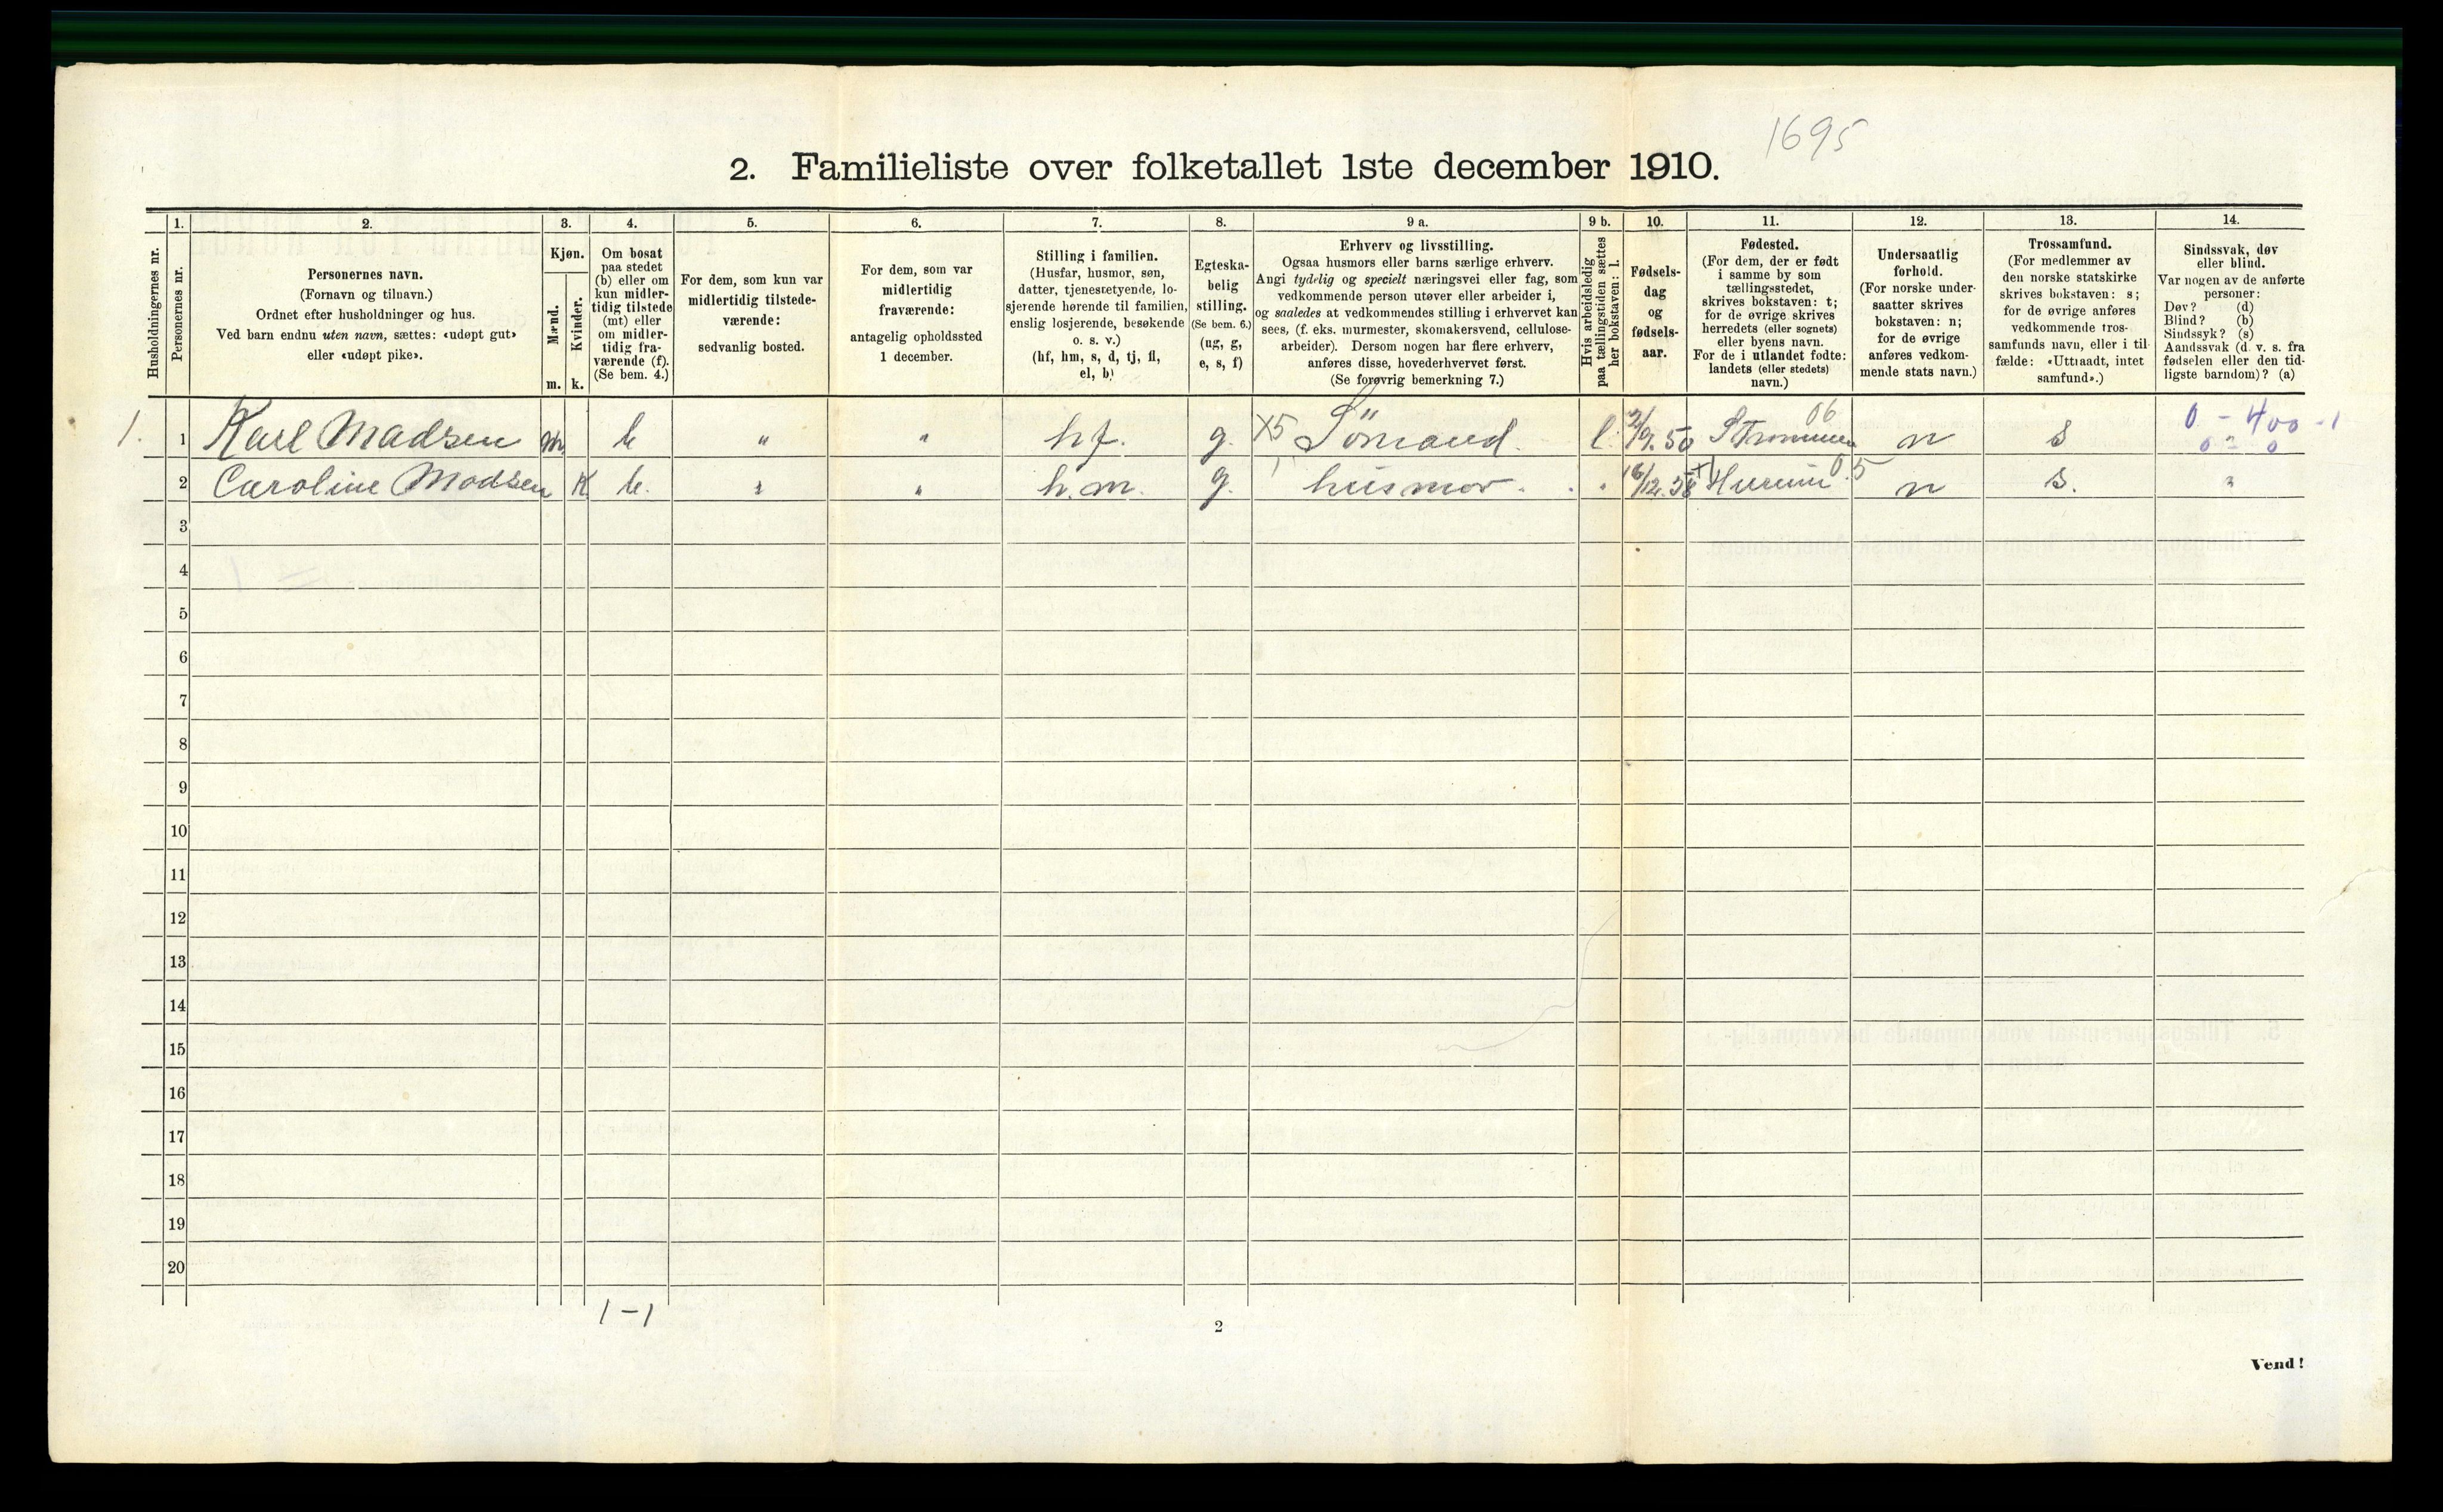 1695
2. Familieliste over folketallet 1ste december 1910.
Husholdningernes nr.
1. Personernes nr.
2. Personernes navn.
(Fornavn og tilnavn.)
Ordnet efter husholdninger og hus.
Ved barn endnu uten navn, sættes: «udøpt gut»
eller «udøpt pike».
3. Kjøn.
Mænd. m.
Kvinder. k.
4. Om bosat
paa stedet
(b) eller om
kun midler-
tidig tilstede
(mt) eller
om midler-
tidig fra-
værende (f).
(Se bem. 4.)
5. For dem, som kun var
midlertidig tilstede-
værende:
sedvanlig bosted.
6. For dem, som var
midlertidig
fraværende:
antagelig opholdssted
1 december.
7. Stilling i familien.
(Husfar, husmor, søn,
datter, tjenestetyende, lo-
sjerende hørende til familien,
enslig losjerende, besøkende
o. s. v.)
(hf, hm, s, d, tj, fl,
el, b)
8. Egteska-
belig
stilling.
(Se bem. 6.)
(ug, g,
e, s, f)
9 a. Erhverv og livsstilling.
Ogsaa husmors eller barns særlige erhverv.
Angi tydelig og specielt næringsvei eller fag, som
vedkommende person utøver eller arbeider i,
og saaledes at vedkommendes stilling i erhvervet kan
sees, (f. eks. murmester, skomakersvend, cellulose-
arbeider). Dersom nogen har flere erhverv,
anføres disse, hovederhvervet først.
(Se forøvrig bemerkning 7.)
9 b. Hvis arbeidsledig
paa tællingstiden sættes
her bokstaven: l.
10. Fødsels-
dag
og
fødsels-
aar.
11. Fødested.
(For dem, der er født
i samme by som
tællingsstedet,
skrives bokstaven: t;
for de øvrige skrives
herredets (eller sognets)
eller byens navn.
For de i utlandet fødte:
landets (eller stedets)
navn.)
12. Undersaatlig
forhold.
(For norske under-
saatter skrives
bokstaven: n;
for de øvrige
anføres vedkom-
mende stats navn.)
13. Trossamfund.
(For medlemmer av
den norske statskirke
skrives bokstaven: s;
for de øvrige anføres
vedkommende tros-
samfunds navn, eller i til-
fælde: «Uttraadt, intet
samfund».)
14. Sindssvak, døv
eller blind.
Var nogen av de anførte
personer:
Døv? (d)
Blind? (b)
Sindssyk? (s)
Aandssvak (d. v. s. fra
fødselen eller den tid-
ligste barndom)? (a)
06 0 - 400 - 1
1. 1 Karl Madsen m b " " hf. g. X5 Sömand. l. 2/9. 50 Strømmen n s 0 - 0
2 Caroline Madsen K b. " " h.m. g. husmor. " 16/12. 58 Hurum 05 n s. "
3
4
5
6
7
8
9
10
11
12
13
14
15
16
17
18
19
20
1 - 1
2
Vend!